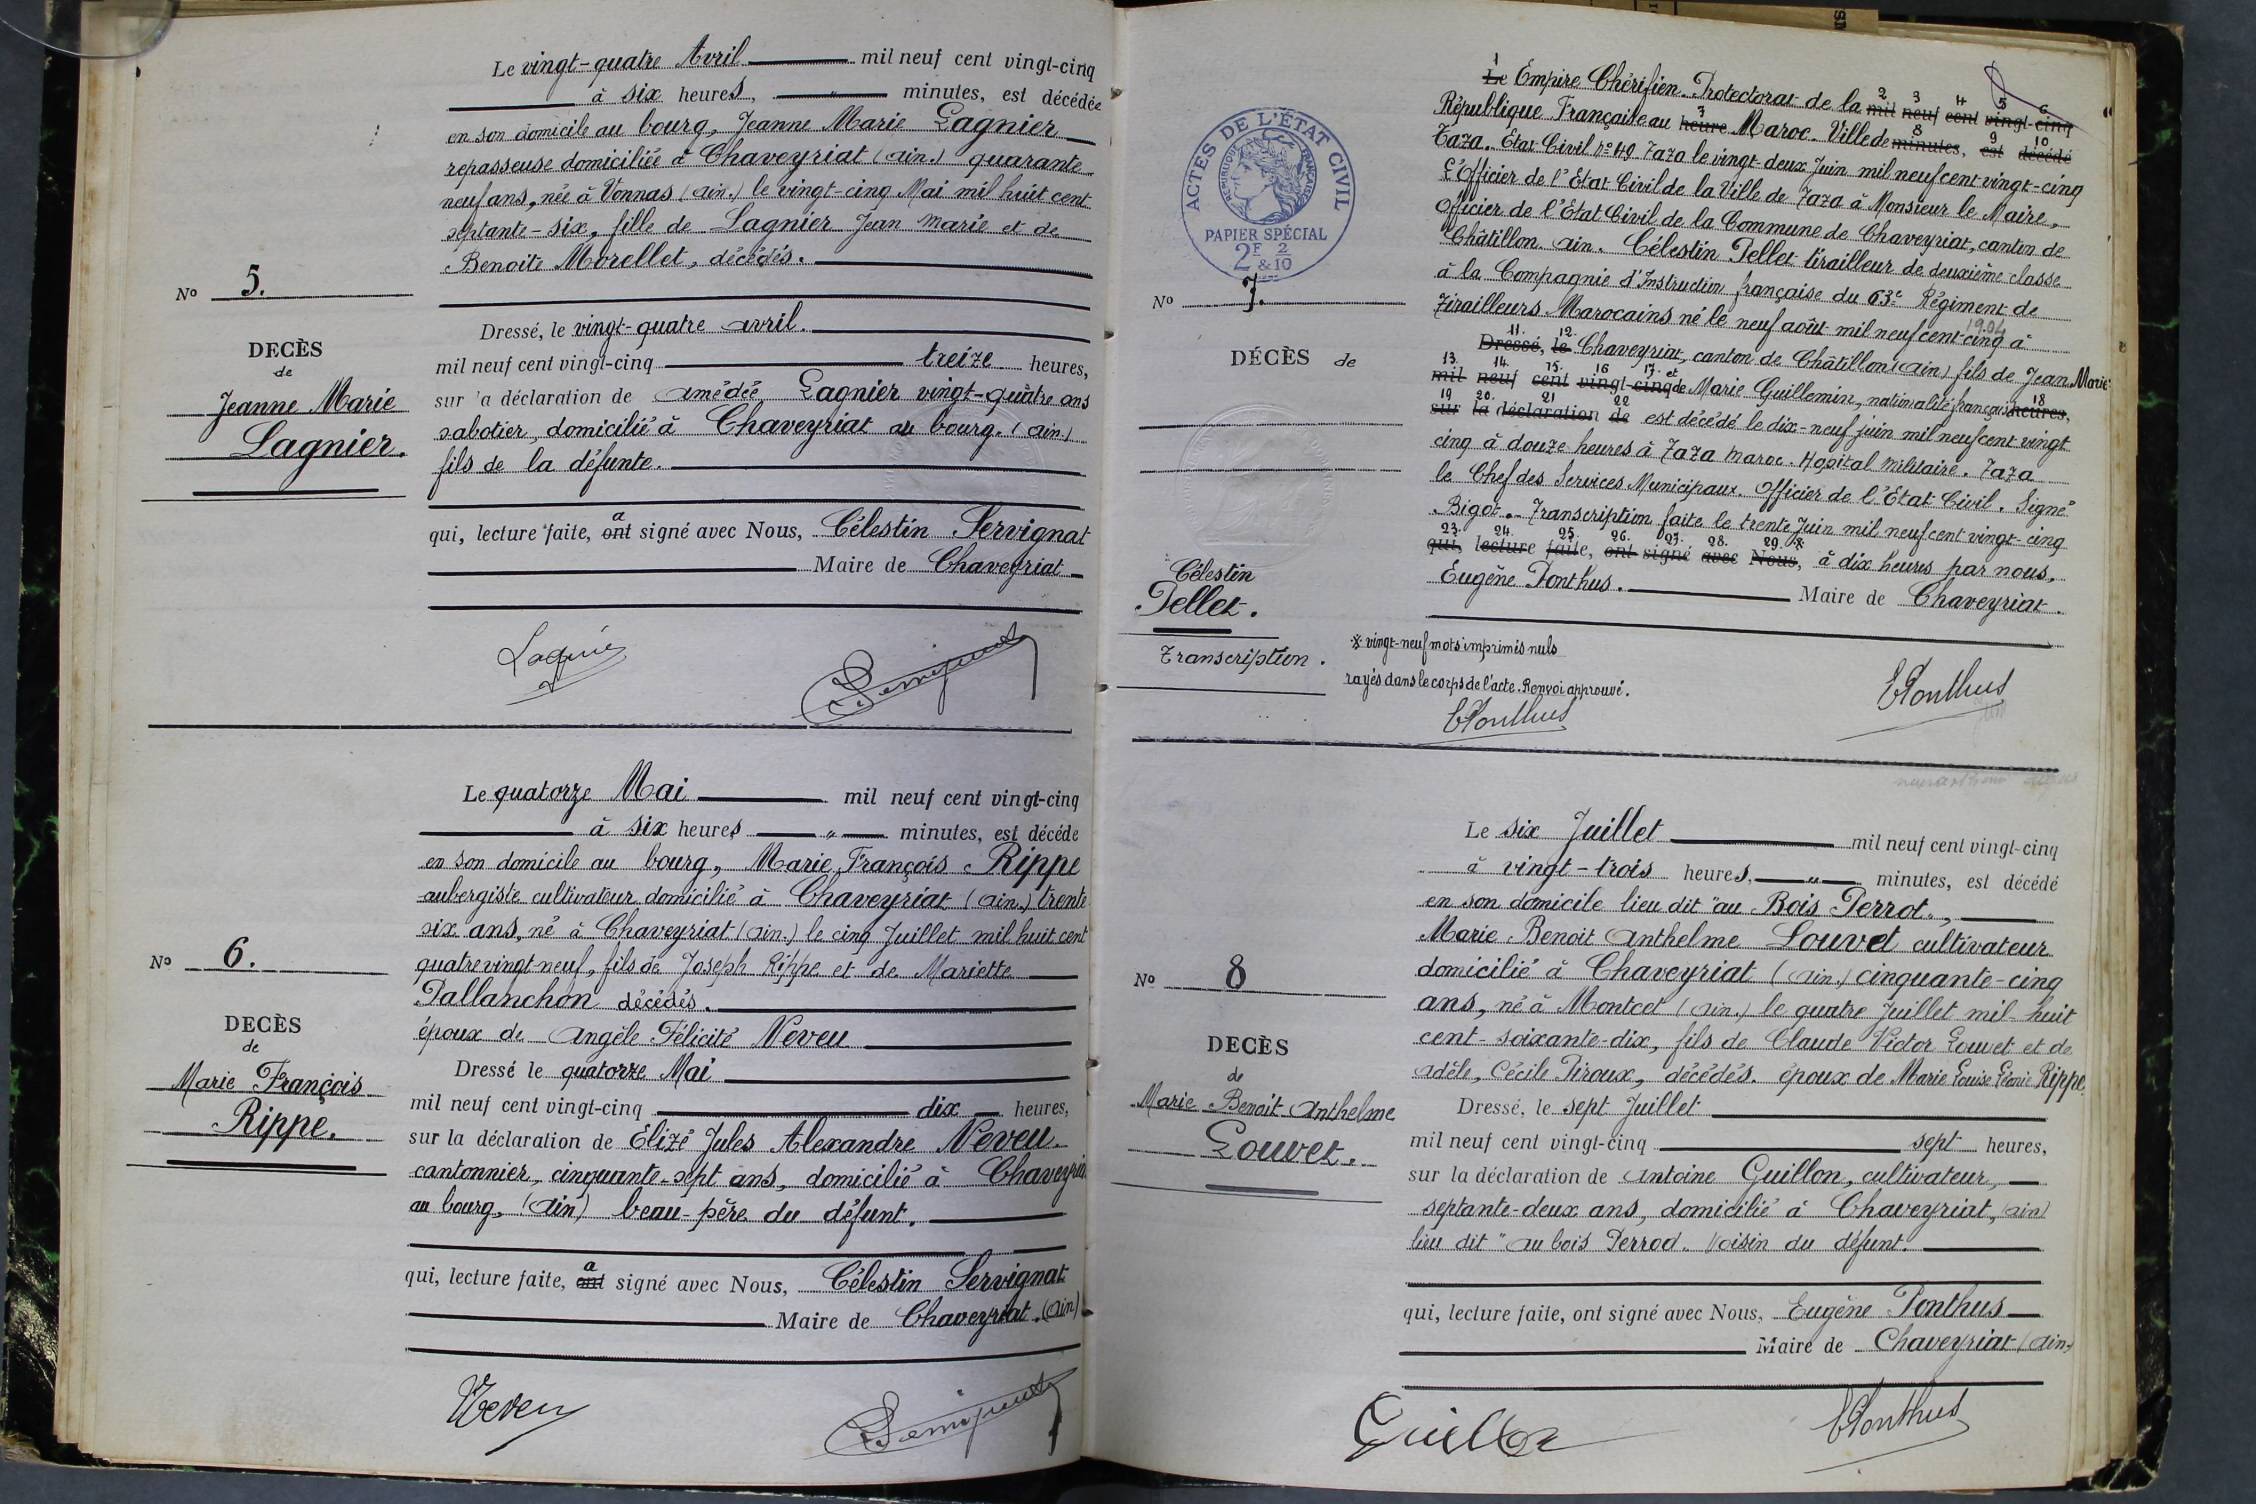 Le vingt-quatre Avril mil neuf cent vingt-cinq
à six heures, " minutes, est décédée
en son domicile au bourg, Jeanne Marie Lagnier
repasseuse domiciliée à Chaveyriat (Ain.) quarante
neuf ans, née à Vonnas (Ain.) le vingt-cinq Mai mil huit cent
septante-six, fille de Lagnier Jean Marie et de
Benoîte Morellet, décédés.
No 5.
DECÈS
de
Jeanne Marie
Lagnier.
Dressé, le vingt-quatre avril.
mil neuf cent vingt-cinq treize heures,
sur la déclaration de Amédée Lagnier vingt-quatre ans
sabotier, domicilié à Chaveyriat au bourg. (Ain.)
fils de la défunte.
qui, lecture faite, ont a signé avec Nous, Célestin Servignat
Maire de Chaveyriat
Le quatorze Mai mil neuf cent vingt-cinq
à six heures " minutes, est décédé
en son domicile au bourg, Marie François Rippe
aubergiste cultivateur domicilié à Chaveyriat (Ain.) trente
six ans, né à Chaveyriat (Ain.) le cinq Juillet mil huit cent
quatre vingt-neuf, fils de Joseph Rippe et de Mariette
Pallanchon décédés.
époux de Angèle Félicité Neveu
No 6.
DECÈS
de
Marie François
Rippe.
Dressé le quatorze Mai
mil neuf cent vingt-cinq dix heures,
sur la déclaration de Elizé Jules Alexandre Neveu
cantonnier, cinquante-sept ans, domicilié à Chaveyria
au bourg, (Ain) beau-père du défunt.
qui, lecture faite, ont a signé avec Nous, Célestin Servignat
Maire de Chaveyriat. (Ain)
Neveu
ACTES DE L'ÉTAT CIVIL
RÉPUBLIQUE FRANÇAISE
PAPIER SPÉCIAL
2F & 2/10
No 7.
DÉCÈS de
Célestin
Pellet.
Transcription.
1 2 3 4 5 6
Le Empire Chérifien. Protectorat de la mil neuf cent vingt-cinq
République Française au heure Maroc. Ville de minutes, est décédé
Taza. État Civil No 49. Taza le vingt-deux Juin mil neuf cent vingt-cinq
L'Officier de l'État Civil de la Ville de Taza à Monsieur le Maire,
Officier de l'État Civil de la Commune de Chaveyriat, canton de
Châtillon. Ain. Célestin Pellet tirailleur de deuxième classe
à la Compagnie d'Instruction française du 63e Régiment de
Tirailleurs Marocains né le neuf août mil neuf cent-cinq à
1904
Dressé, le Chaveyriat, canton de Châtillon (Ain) fils de Jean Marie
mil neuf cent vingt-cinq et de Marie Guillemin, nationalité française heures,
sur la déclaration de est décédé le dix-neuf juin mil neuf cent vingt
cinq à douze heures à Taza Maroc. Hopital Militaire. Taza
le Chef des Services Municipaux. Officier de l'État Civil. Signé
Bigot. Transcription faite le trente Juin mil neuf cent vingt-cinq
qui, lecture faite, ont signé avec Nous, à dix heures par nous,
Eugène Ponthus. Maire de Chaveyriat.
※ vingt-neuf mots imprimés nuls
rayés dans le corps de l'acte. Renvoi approuvé.
EPonthus
EPonthus
Le six Juillet mil neuf cent vingt-cinq
à vingt-trois heures, " minutes, est décédé
en son domicile lieu dit "au Bois Perrot.,
Marie Benoit Anthelme Louvet cultivateur
domicilié à Chaveyriat (Ain.) cinquante-cinq
ans, né à Montcet (Ain.) le quatre Juillet mil huit
cent-soixante-dix, fils de Claude Victor Louvet et de
Adèle, Cécile Piroux, décédés. époux de Marie Louise Léonie Rippe
No 8
DECÈS
de
Marie Benoit Anthelme
Louvet.
Dressé, le sept Juillet
mil neuf cent vingt-cinq sept heures,
sur la déclaration de Antoine Guillon, cultivateur,
septante-deux ans, domicilié à Chaveyriat, (Ain)
lieu dit "au bois Perrod. Voisin du défunt.
qui, lecture faite, ont signé avec Nous, Eugène Ponthus
Maire de Chaveyriat (Ain.)
EPonthus